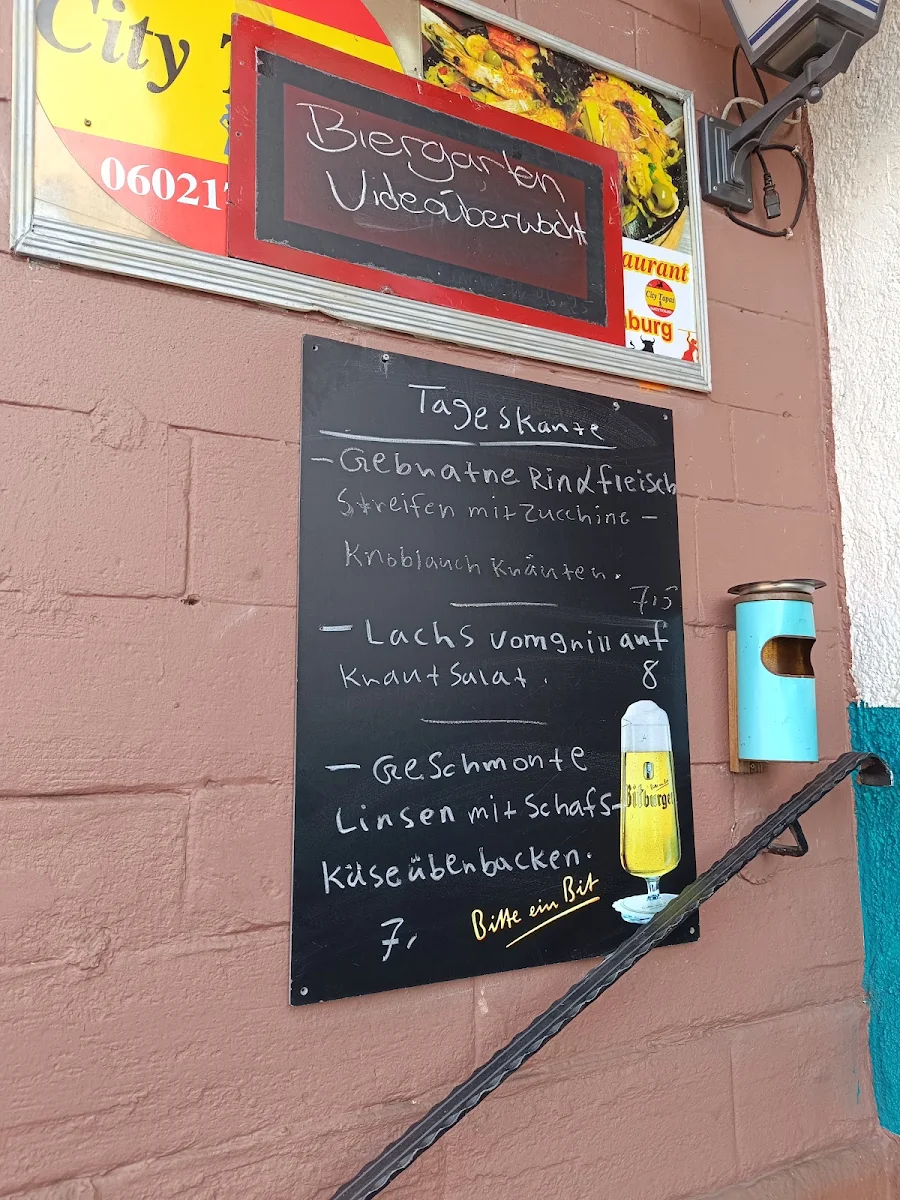 City
06021
Biergarten
Videoüberwacht
aurant
City Tapas
burg
Tageskante
- Gebnatne Rindfleisch
Streifen mit Zucchine -
Knoblauch Knäuten.
7,5
- Lachs vom gnill auf
Knaut Salat. 8
- Geschmonte
Linsen mit Schafs-
Käse übenbacken.
7,
Bitburger
Bitte ein Bit